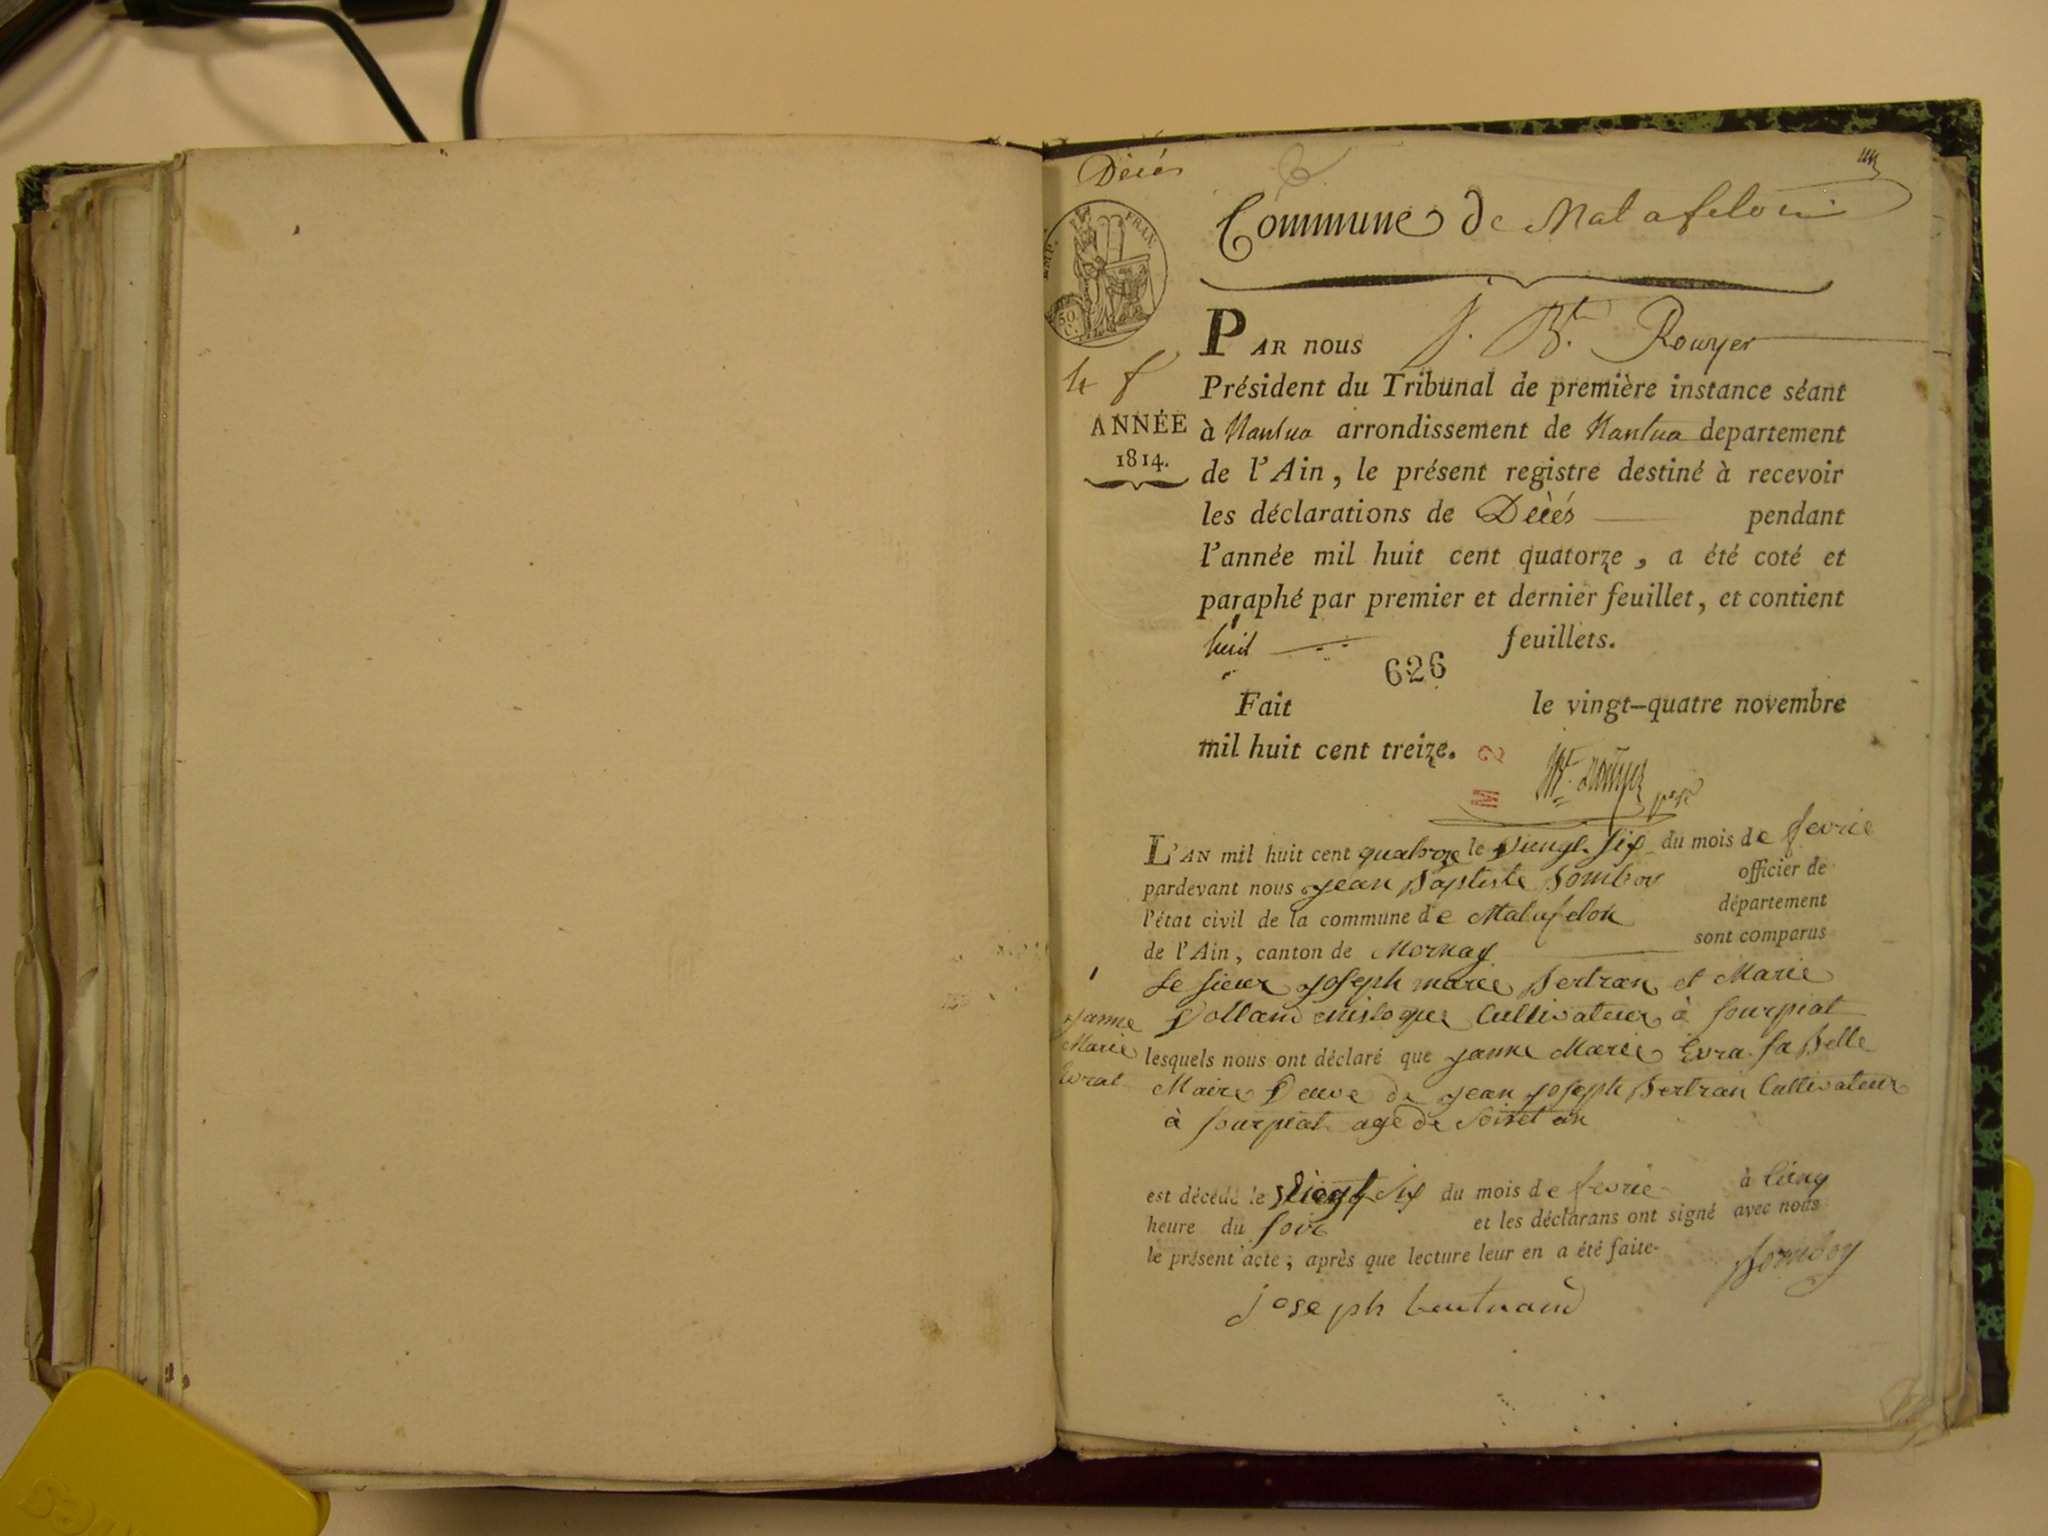 Décés
Commune de Matafelon
PAR nous J. Bte. Rouyer
1er f
Président du Tribunal de première instance séant
ANNÉE
1814.
à Nantua arrondissement de Nantua departement
de l'Ain, le présent registre destiné à recevoir
les déclarations de Décés pendant
l'année mil huit cent quatorze, a été coté et
paraphé par premier et dernier feuillet, et contient
huit feuillets.
626
Fait le vingt-quatre novembre
mil huit cent treize.
Bte. Rouyer
L'AN mil huit cent quatorze le vingt six du mois de fevrie
pardevant nous jean Baptiste Bomboy officier de
l'état civil de la commune de Matafelon département
de l'Ain, canton de Mornay sont comparus
Le sieur joseph marie Bertran et Marie
1
janne
Marie
Evrat
Volland cultivateur à sourpiat
lesquels nous ont déclaré que janne Marie Evra sa Belle
Maire veuve de jean joseph Bertran cultivateur
à sourpiat age de
est décédé le vingt six du mois de fevrie à cinq
heure du soir et les déclarans ont signé avec nous
le présent acte, après que lecture leur en a été faite.
Bomboy
joseph bertrand